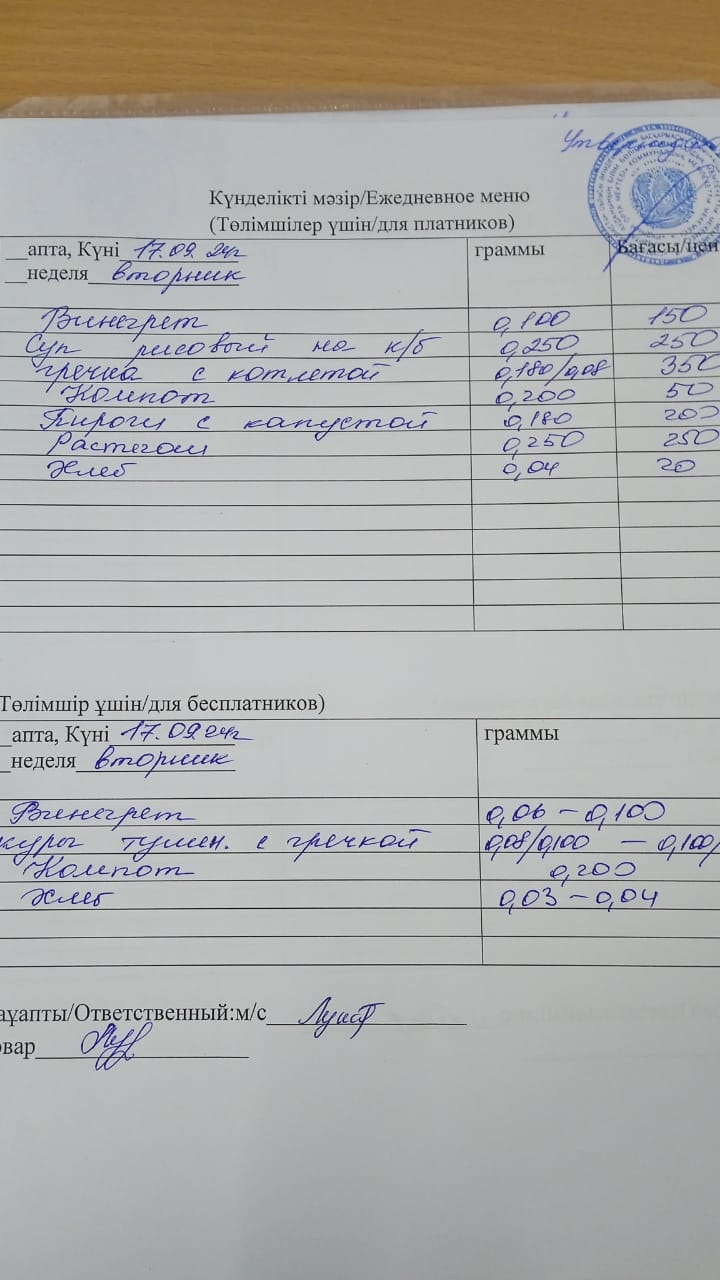 Күнделікті мәзір/Ежедневное меню
(Төлімшілер үшін/для платников)
__апта, Күні 17.09.24г граммы Бағасы/цен
__неделя вторник
Винегрет 0,100 150
Суп рисовый на к/б 0,250 250
гречка с котлетой 0,180/0,08 350
Компот 0,200 50
Пироги с капустой 0,180 200
Растегаи 0,250 250
Хлеб 0,04 20
Төлімшір ұшін/для бесплатников)
__апта, Күні 17.09.24г граммы
_неделя вторник
Винегрет 0,06 – 0,100
куры тушен. с гречкой 0,08/0,100 – 0,100/
Компот 0,200
Хлеб 0,03 – 0,04
ауапты/Ответственный:м/с
овар